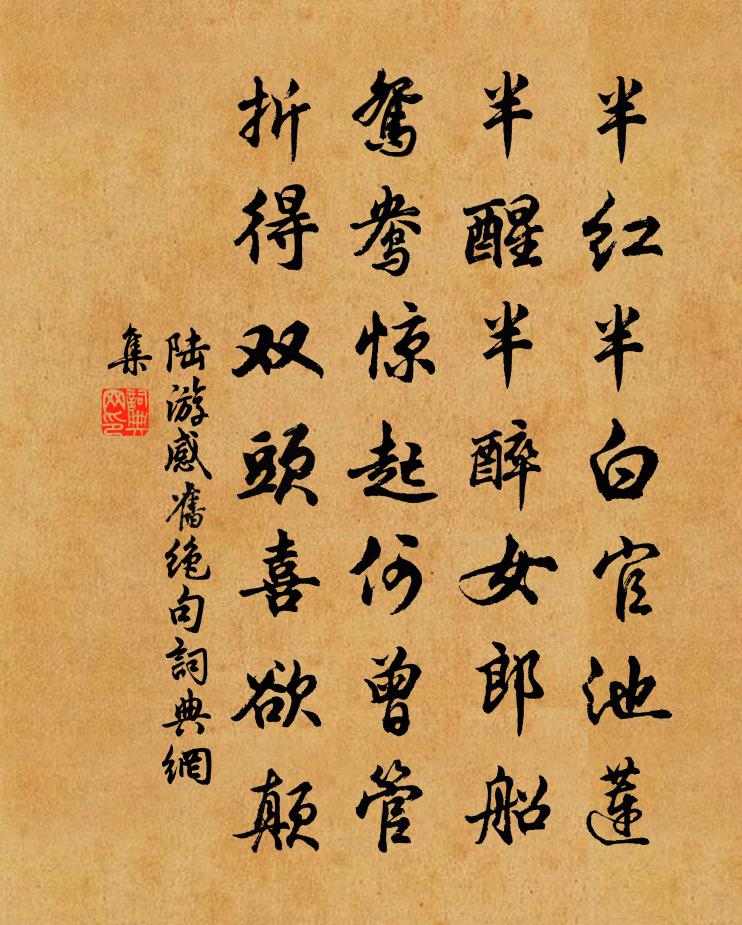 半红半白官池莲
半醒半醉女郎船
鸳鸯惊起何曾管
折得双头喜欲颠
陆游感舊绝句詞典網
集
詞典
网印